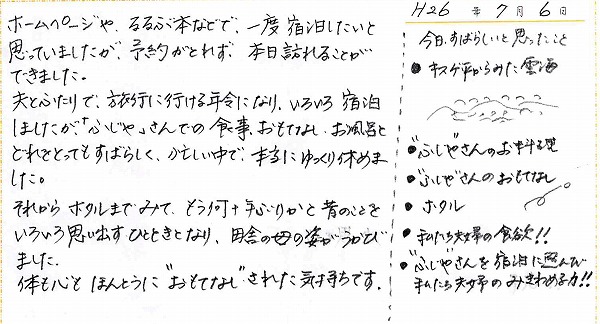 ホームページや、るるぶ本などで、一度宿泊したいと
思っていましたが、予約がとれず、本日訪れることが
できました。
夫とふたりで、旅行に行ける年令になり、いろいろ宿泊
しましたが、「ふじや」さんでの食事、おもてなし、お風呂と
どれをとってもすばらしく、忙しい中で、本当にゆっくり休めま
した。
それから ホタルまでみて、もう何十年ぶりかと昔のことを
いろいろ思い出すひとときとなり、田舎の母の姿がうかび
ました。
体も心も ほんとうに "おもてなし" された気持ちです。
H26 年 7 月 6 日
今日、すばらしいと思ったこと
● キスゲ平からみた雲海
● "ふじや"さんのお料理
● "ふじや"さんのおもてなし
● ホタル
● 私たち夫婦の食欲!!
● "ふじや"さんを宿泊に選んだ
私たち夫婦のみきわめる力!!